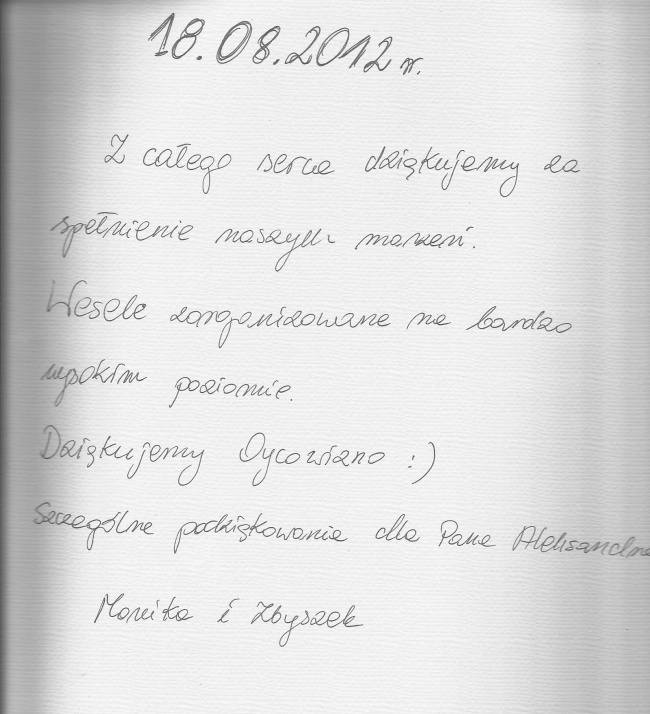 18.08.2012 r.
Z całego serca dziękujemy za
spełnienie naszych marzeń.
Wesele zorganizowane na bardzo
wysokim poziomie.
Dziękujemy Oycowizno :)
Szczególne podziękowania dla Pana Aleksandra
Monika i Zbyszek